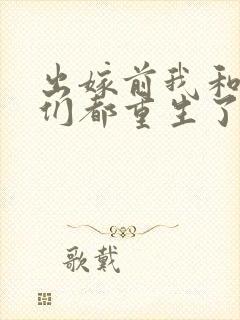 出嫁前我和
们都重生了
歌戴